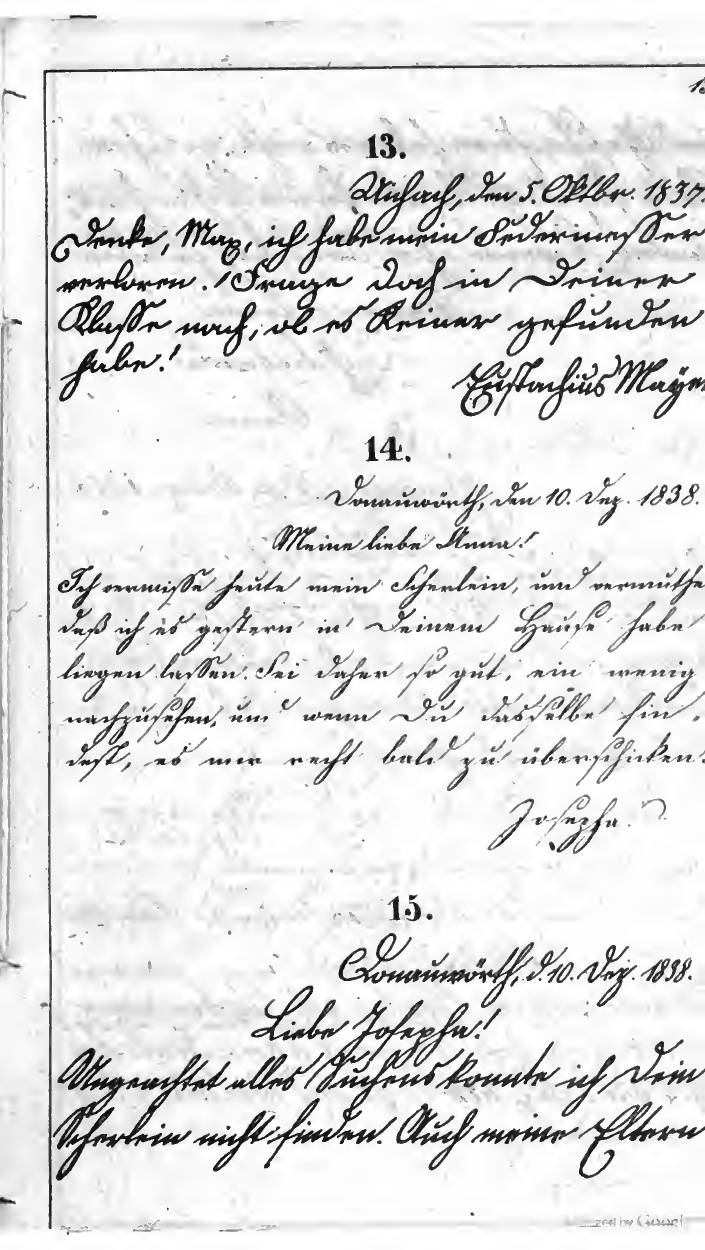 13.
Aichach, den 5. Oktbr. 1837.
Denke, Max, ich habe mein Federmesser
verloren! Frage doch in Deiner
Klasse nach, ob es Keiner gefunden
habe!
Eustachius Mayer
14.
Donauwörth, den 10. Dez. 1838.
Meine liebe Anna!
Ich vermisse heute mein Scherlein, und vermuthe
daß ich es gestern in Deinem Hause habe
liegen lassen. Sei daher so gut, ein wenig
nachzusehen, und wenn Du dasselbe fin-
dest, es mir recht bald zu überschicken.
Josepha.
15.
Donauwörth, d. 10. Dez. 1838.
Liebe Josepha!
Ungeachtet alles Suchens konnte ich Dein
Scherlein nicht finden. Auch meine Eltern